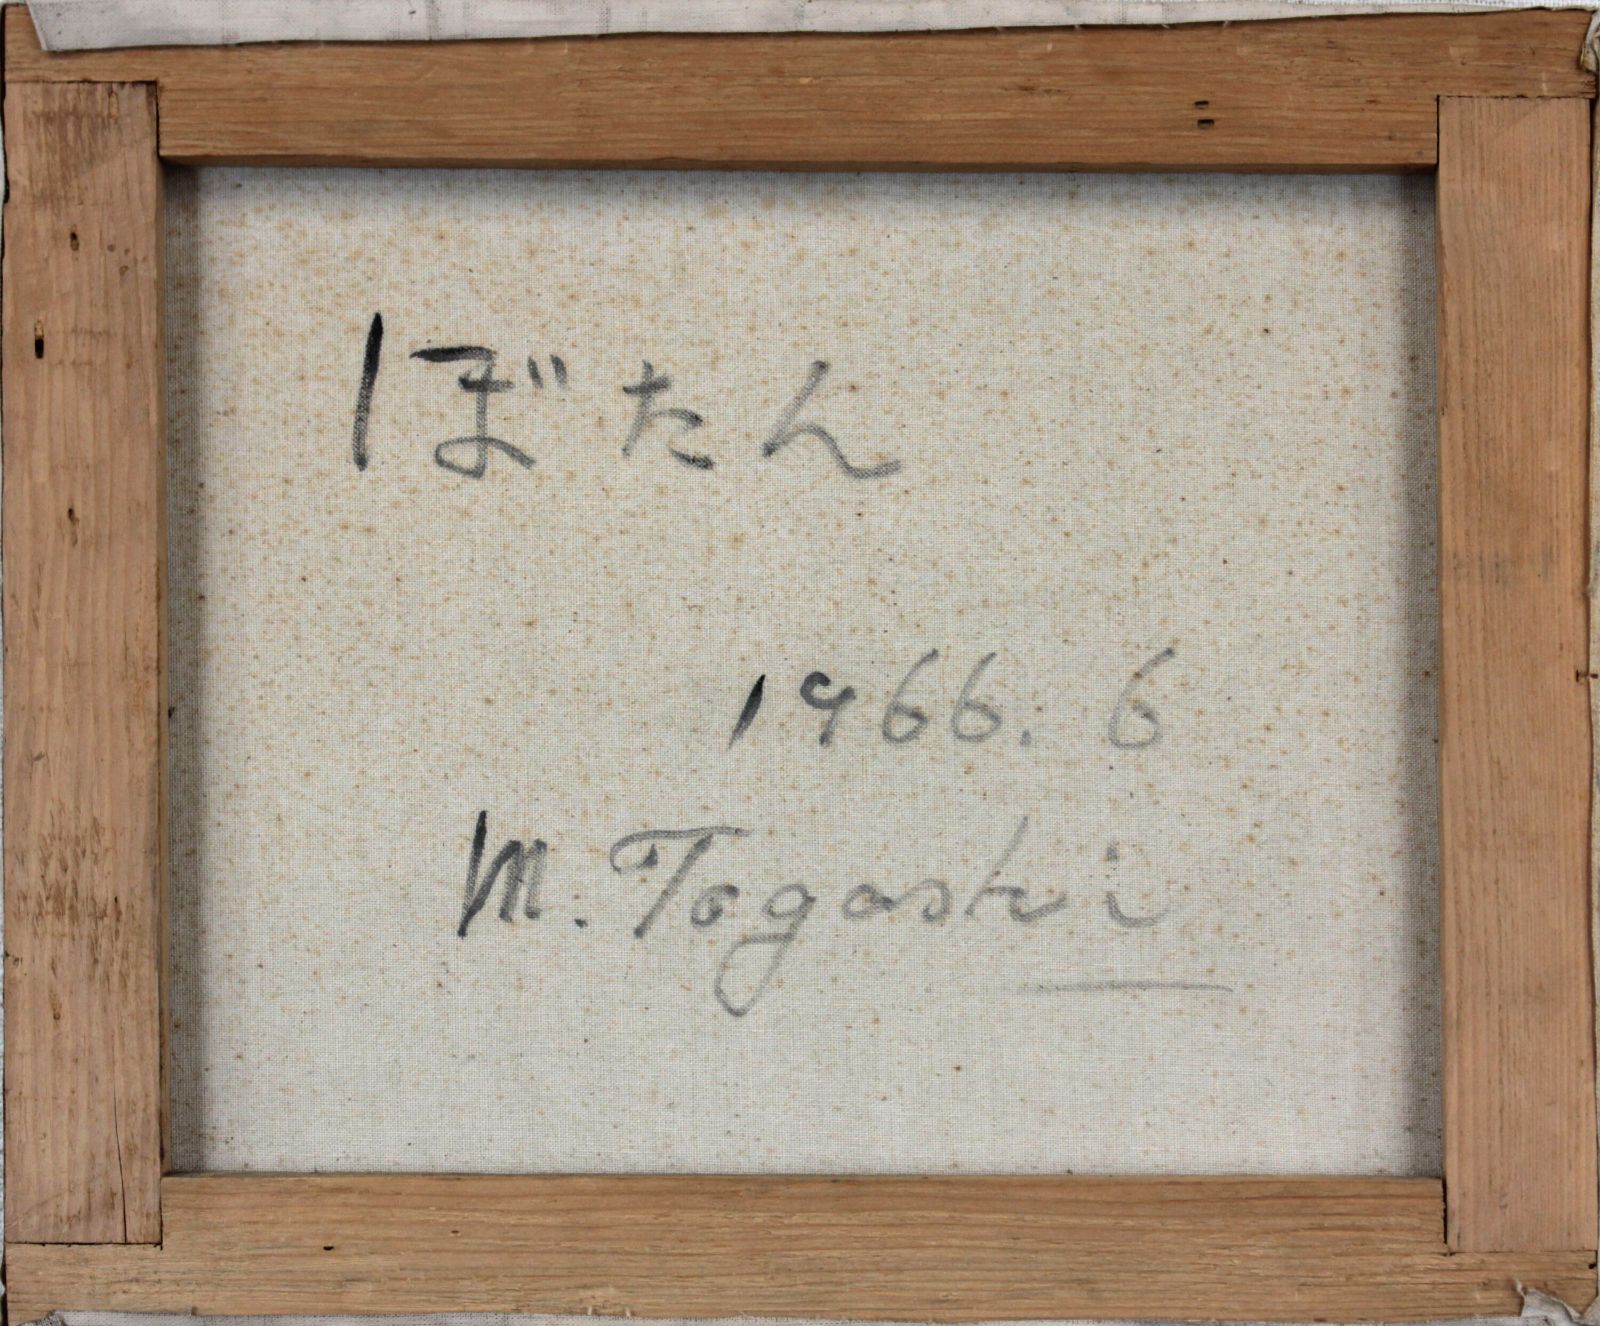 ぼたん
1966. 6
M. Togashi